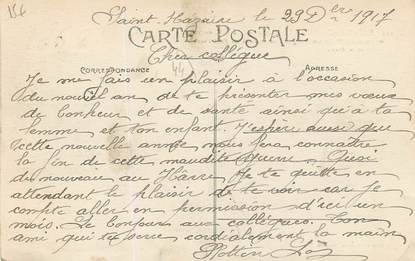 Saint Nazaire le 29 Dbre 1917
CARTE POSTALE
Cher collègue
CORRESPONDANCE
ADRESSE
Je me fais un plaisir à l'occasion
du nouvel an de te présenter mes vœux
de bonheur et de santé ainsi qu'à ta
femme et ton enfant. J'espère aussi que
cette nouvelle année nous fera connaître
la fin de cette maudite guerre. Quoi
de nouveau au Havre. Je te quitte en
attendant le plaisir de te voir car je
compte aller en permission d'ici un
mois. Le bonjour aux collègues. Ton
ami qui te serre cordialement la main